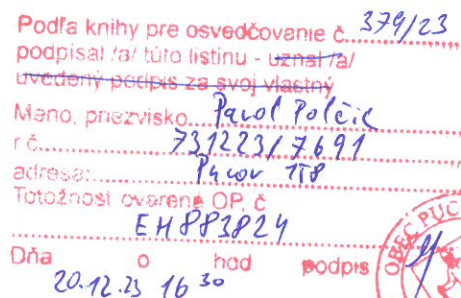 Podľa knihy pre osvedčovanie č. 379/23
podpísal /a/ túto listinu - uznal /a/
uvedený podpis za svoj vlastný
Meno, priezvisko Pavol Polčic
r č. 731223/7691
adresa: Pucov 178
Totožnosť overená OP, č
EH883824
Dňa o hod podpis
20.12.23 16 30
OBEC PUC